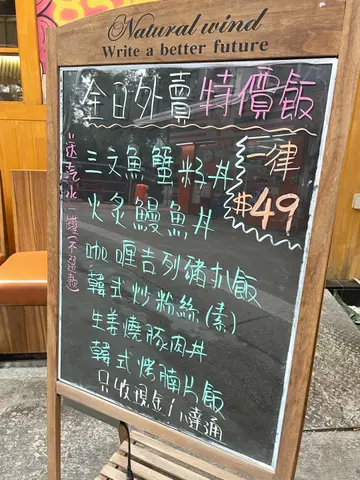 Natural wind
Write a better future
全日外賣 特價飯
一律
$49
三文魚蟹籽丼
火炙鰻魚丼
咖喱吉列豬扒飯
韓式炒粉絲(素)
生姜燒豚肉丼
韓式烤腩片飯
只收現金/八達通
送汽水一罐(不是甁)